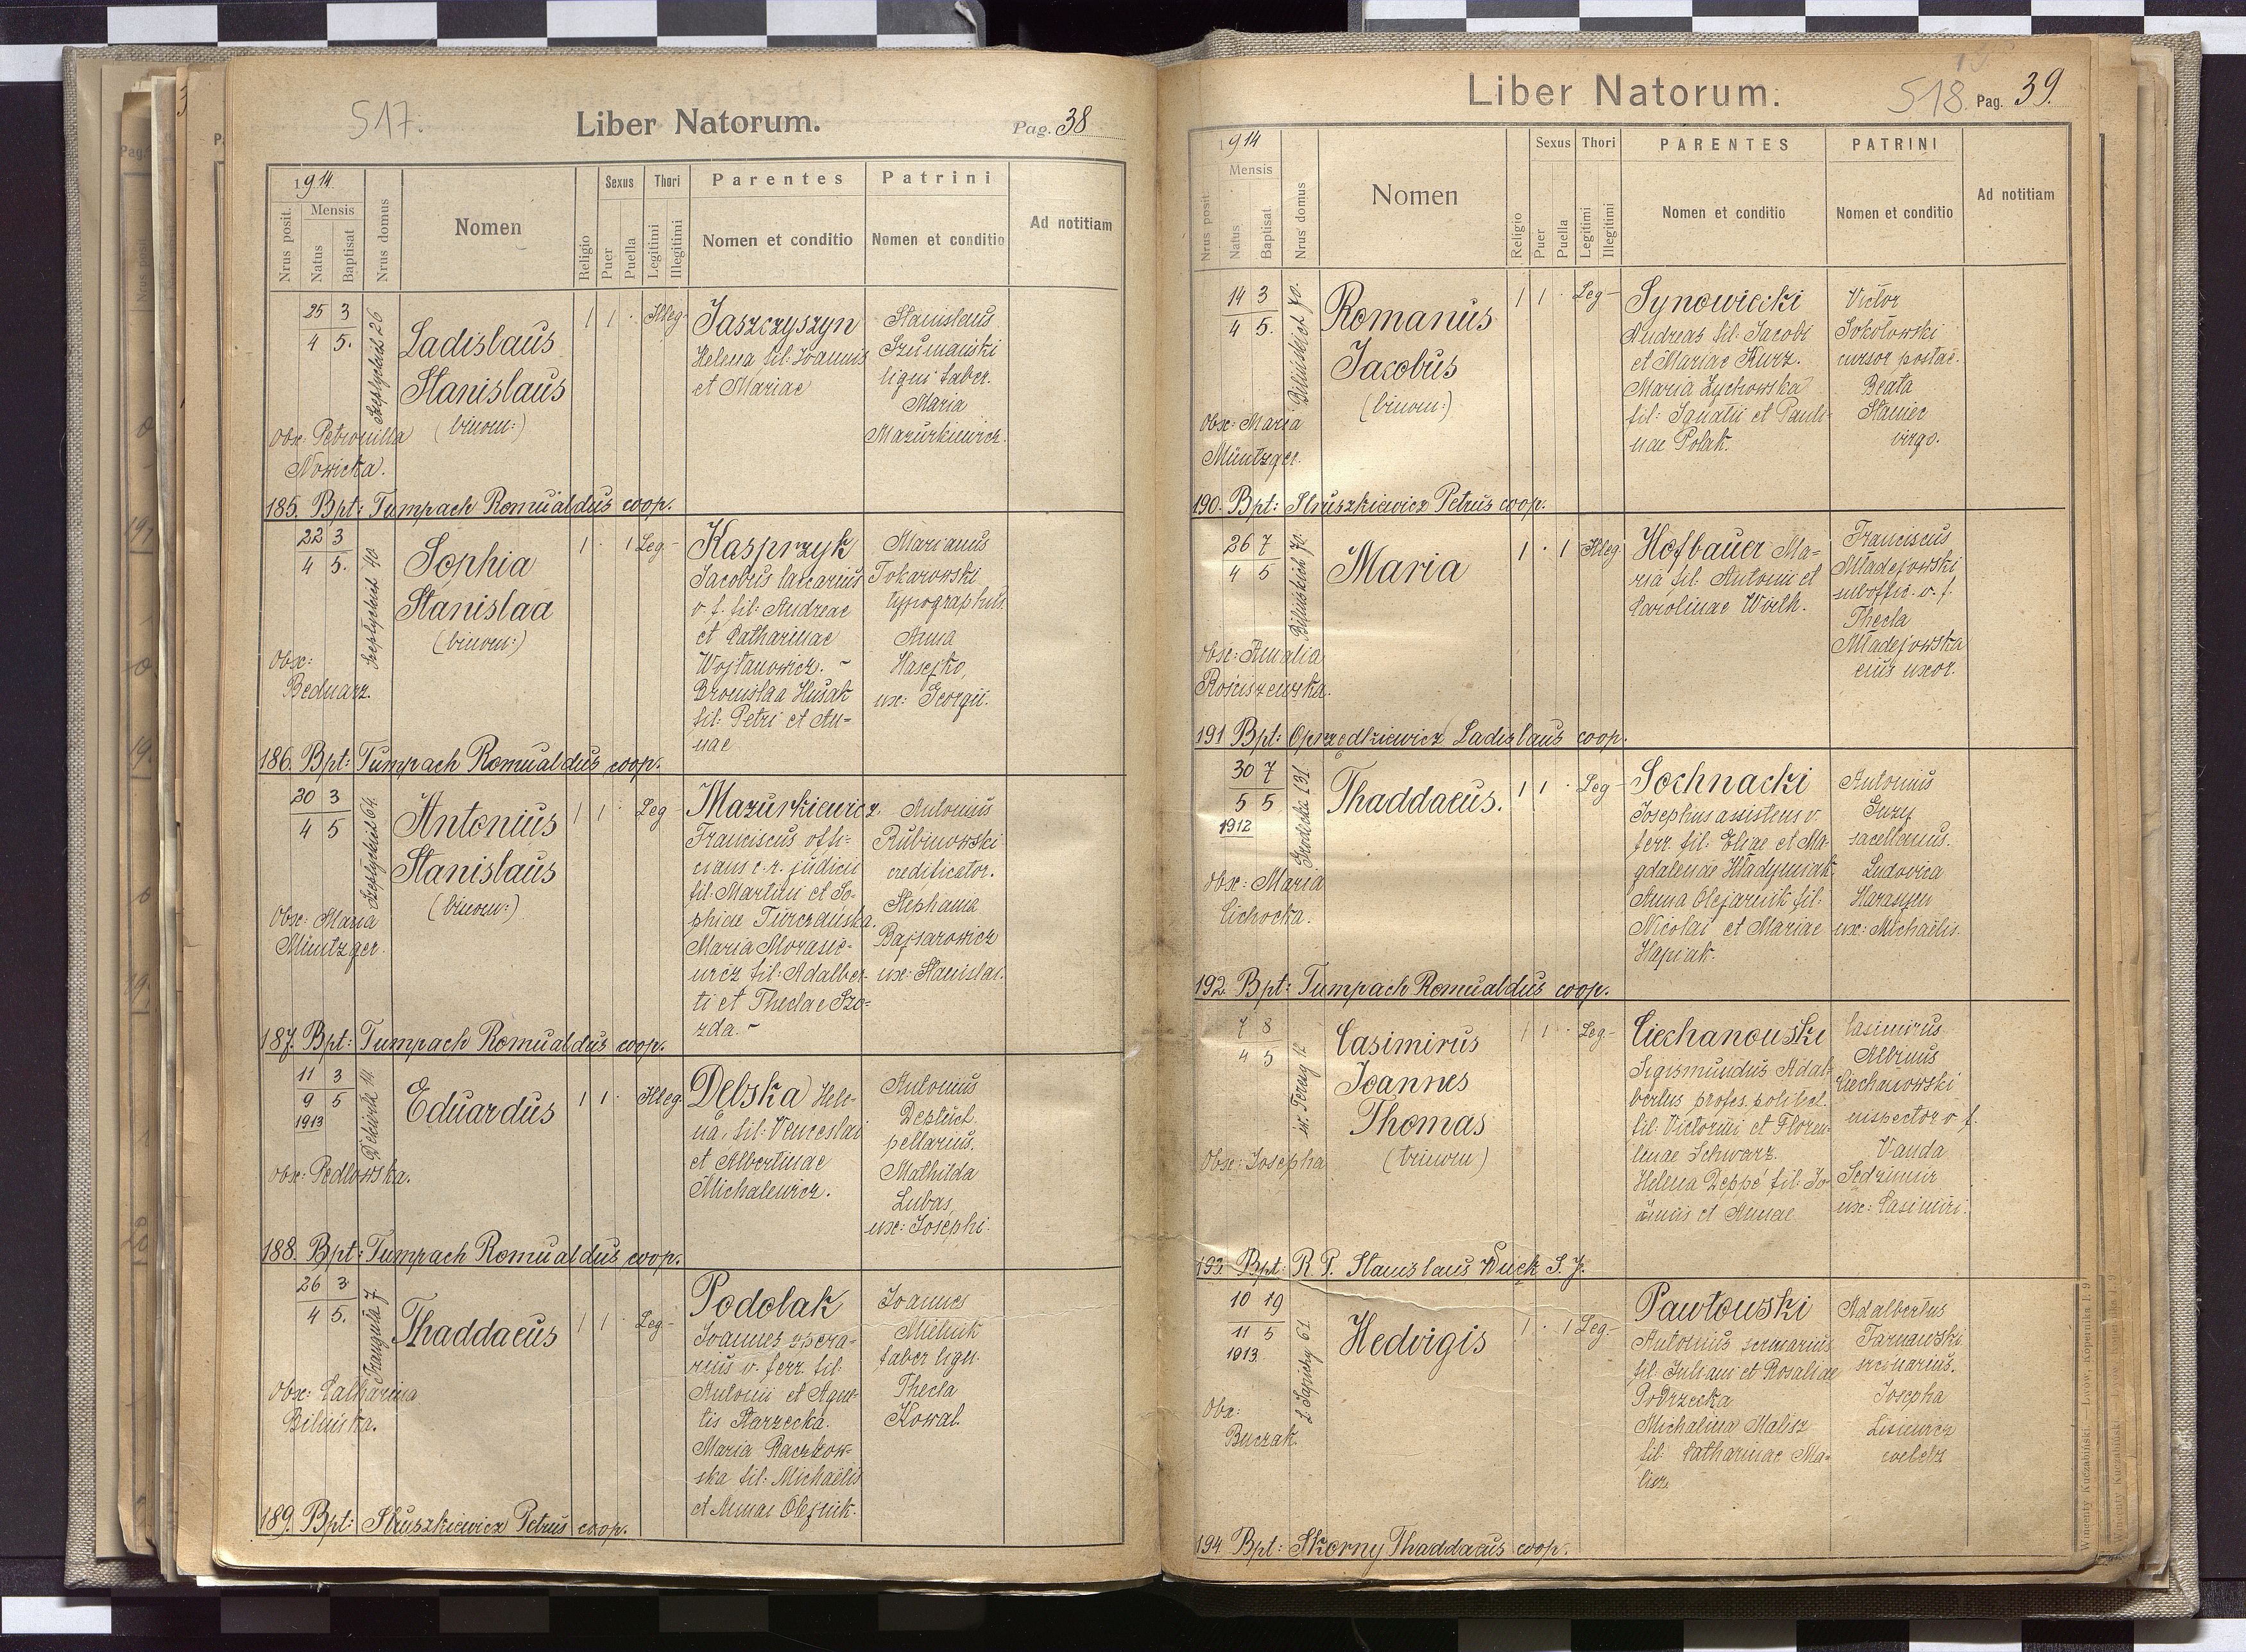 517.
Liber Natorum.
Pag. 38
1914
Nrus posit.
Mensis
Natus
Baptisat
Nrus domus
Nomen
Religio
Sexus
Puer
Puella
Thori
Legitimi
Illegitimi
Parentes
Nomen et conditio
Patrini
Nomen et conditio
Ad notitiam
25 3
4 5.
Szeptyckich 26
Ladislaus
Stanislaus
(binom:)
Obx: Petronilla
Nowicka.
1 1 · Illeg
Jaszczyszyn
Helena fil: Joannis
et Mariae
Stanislaus
Szumański
ligni faber.
Maria
Mazurkiewicz.
185. Bpt: Tumpach Romualdus coop.
22 3
4 5.
Szeptyckich 40
Sophia
Stanislaa
(binom:)
Obx:
Bednarz.
1 · 1 Leg-
Kasprzyk
Jacobus
v. f. fil: Andreae
et Catharinae
Wojtanowicz. -
Bronislaa Husak
fil: Petri et An-
nae
Marianus
Tokarowski
typographus
Anna
ux: Georgii.
186. Bpt: Tumpach Romualdus coop.
20 3
4 5
Szeptyckich 64.
Antonius
Stanislaus
(binom:)
Obx: Maria
Müntzger.
1 1 · Leg
Mazurkiewicz
Franciscus offi-
cians c. r. judicii
fil: Martini et So-
phiae
Maria
fil: Adalber-
ti et Theclae Szo-
zda. -
Antonius
Rubinowski
aedificator.
Stephania
Bajsarowicz
ux: Stanislai.
187. Bpt: Tumpach Romualdus coop.
11 3
9 5
1913
Dekierta 14.
Eduardus
Obx: Pedlowska.
1 1 · Illeg.
Delska Hele-
na, fil: Venceslai
et Albertinae
Michalewicz.
Antonius
pellarius.
Mathilda
Lubas,
ux: Josephi.
188. Bpt: Tumpach Romualdus coop.
26 3
4 5.
7
Thaddaeus
Obx: Catharina
Bilińska.
1 1 · Leg-
Podolak
Joannes opera-
rius v. ferr. fil:
Antonii et Agne-
tis Starzecka.
Maria Raczkow-
ska fil: Michaëlis
et Annae Olejnik.
Joannes
Mielnik
faber lign.
Thecla
Kowal.
189. Bpt: Struszkiewicz Petrus coop.
Liber Natorum.
518. Pag. 39.
1914
Nrus posit
Mensis
Natus
Baptisat.
Nrus domus
Nomen
Religio
Sexus
Puer
Puella
Thori
Legitimi
Illegitimi
PARENTES
Nomen et conditio
PATRINI
Nomen et conditio
Ad notitiam
14 3
4 5.
Bilińskich 70.
Romanus
Jacobus
(binom:)
Obx: Maria
Müntzger.
1 1 · Leg-
Synowiecki
Andreas fil: Jacobi
et Mariae Kurz.
Maria Zychowska
fil: Ignatii et Pauli-
nae Polak.
Victor
Sokołowski
cursor postae.
Beata
Staniec
virgo.
190. Bpt: Struszkiewicz Petrus coop.
26 7
4 5
Bilińskich 70.
Maria
Obx: Amalia
Rościszewska.
1 · 1 Illeg
Hofbauer Ma-
ria fil: Antonii et
Carolinae Wirth.
Franciscus
Madejowski
suboffic. v. f.
Thecla
Madejowska
eius uxor.
191 Bpt: Oprzędkiewicz Ladislaus coop.
30 7
5 5
1912
Grodecka 131.
Thaddaeus.
Obx: Maria
Cichocka.
1 1 · Leg-
Sochnacki
Josephus assistens v.
ferr. fil: Eliae et Ma-
gdalenae Hladyniak
Anna Olejarnik fil:
Nicolai et Mariae
Hapiak.
Antonius
sacellanus.
Ludovica
Harasym
ux: Michaëlis.
192. Bpt: Tumpach Romualdus coop.
7 8
4 5
st. Teresy 12
Casimirus
Joannes
Thomas
(trinom)
Obx: Josepha
1 1 · Leg-
Ciechanowski
Sigismundus Adal-
bertus profes. politech.
fil: Victorini et Floren-
tinae Schwarz.
Helena Deppé fil: Jo-
annis et Annae
Casimirus
Albinus
Ciechanowski
inspector v. f.
Vanda
Sedzimir
ux: Casimiri.
193. Bpt: R. P. Stanislaus S. J.
10 19
11 5
1913.
L. Sapiehy 61.
Hedvigis
Obx:
Buczak.
1 · 1 Leg-
Pawłowski
Antonius scenarius
fil: Juliani et Rosaliae
Podrzecka
Michalina Malisz
fil: Catharinae Ma-
lisz.
Adalbertus
Tarnawski
scenarius.
Josepha
Lisiewicz
coelebs
194. Bpt: Skorny Thaddaeus coop.
Wincenty Kuczabiński — Lwów, Kopernika l. 9